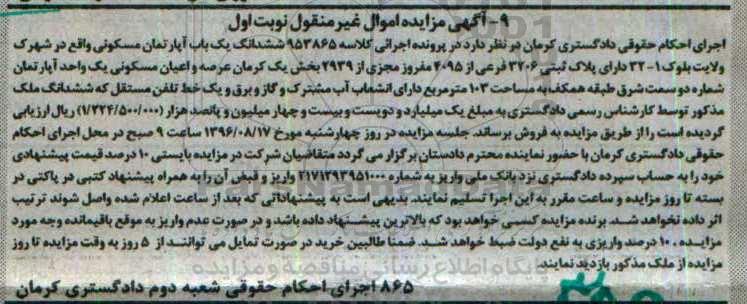 ۹- آگهی مزایده اموال غیر منقول نوبت اول
اجرای احکام حقوقی دادگستری کرمان در نظر دارد در پرونده اجرائی کلاسه ۹۵۳۸۶۵ ششدانگ یک باب آپارتمان مسکونی واقع در شهرک
ولایت بلوک ۱-۳۲ دارای پلاک ثبتی ۳۲۰۶ فرعی از ۴۰۹۵ مفروز مجزی از ۲۹۳۹ بخش یک کرمان عرصه و اعیان مسکونی یک واحد آپارتمان
شماره دو سمت شرق طبقه همکف به مساحت ۱۰۳ متر مربع دارای انشعاب آب مشترک و گاز و برق و یک خط تلفن مستقل که ششدانگ ملک
مذکور توسط کارشناس رسمی دادگستری به مبلغ یک میلیارد و دویست و بیست و چهار میلیون و پانصد هزار (۱/۲۲۴/۵۰۰/۰۰۰) ریال ارزیابی
گردیده است را از طریق مزایده به فروش برساند. جلسه مزایده در روز چهارشنبه مورخ ۱۳۹۶/۰۸/۱۷ ساعت ۹ صبح در محل اجرای احکام
حقوقی دادگستری کرمان با حضور نماینده محترم دادستان برگزار می گردد متقاضیان شرکت در مزایده بایستی ۱۰ درصد قیمت پیشنهادی
خود را به حساب سپرده دادگستری نزد بانک ملی واریز به شماره ۲۱۷۱۲۹۳۹۵۱۰۰۰ واریز و قبض آن را به همراه پیشنهاد کتبی در پاکتی در
بسته تا روز مزایده و ساعت مقرر به این اجرا تسلیم نمایند. بدیهی است به پیشنهاداتی که بعد از ساعت اعلام شده واصل شوند ترتیب
اثر داده نخواهد شد. برنده مزایده کسی خواهد بود که بالاترین پیشنهاد داده باشد و در صورت عدم واریز به موقع باقیمانده وجه مورد
مزایده، ۱۰ درصد واریزی به نفع دولت ضبط خواهد شد. ضمنا طالبین خرید در صورت تمایل می توانند از ۵ روز به وقت مزایده تا روز
مزایده از ملک مذکور بازدید نمایند.
پایگاه اطلاع رسانی مناقصه و مزایده
۸۶۵ اجرای احکام حقوقی شعبه دوم دادگستری کرمان